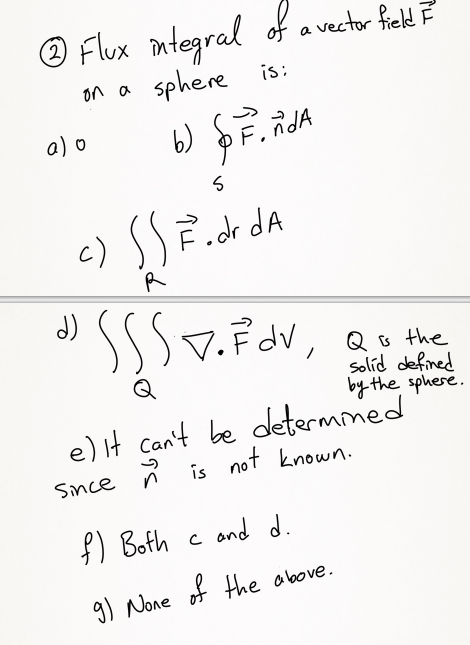 ② Flux integral of a vector field F⃗
on a sphere is:
a) 0 b) ∮_S F⃗ . n⃗ dA
c) ∬_R F⃗ . dr dA
d) ∭_Q ∇ . F⃗ dV , Q is the
solid defined
by the sphere.
e) It can't be determined
since n⃗ is not known.
f) Both c and d.
g) None of the above.